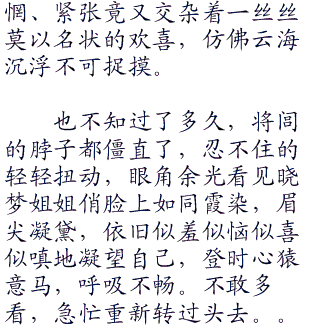 惘、紧张竟又交杂着一丝丝
莫以名状的欢喜，仿佛云海
沉浮不可捉摸。
也不知过了多久，将闾
的脖子都僵直了，忍不住的
轻轻扭动，眼角余光看见晓
梦姐姐俏脸上如同霞染，眉
尖凝黛，依旧似羞似恼似喜
似嗔地凝望自己，登时心猿
意马，呼吸不畅。不敢多
看，急忙重新转过头去。。